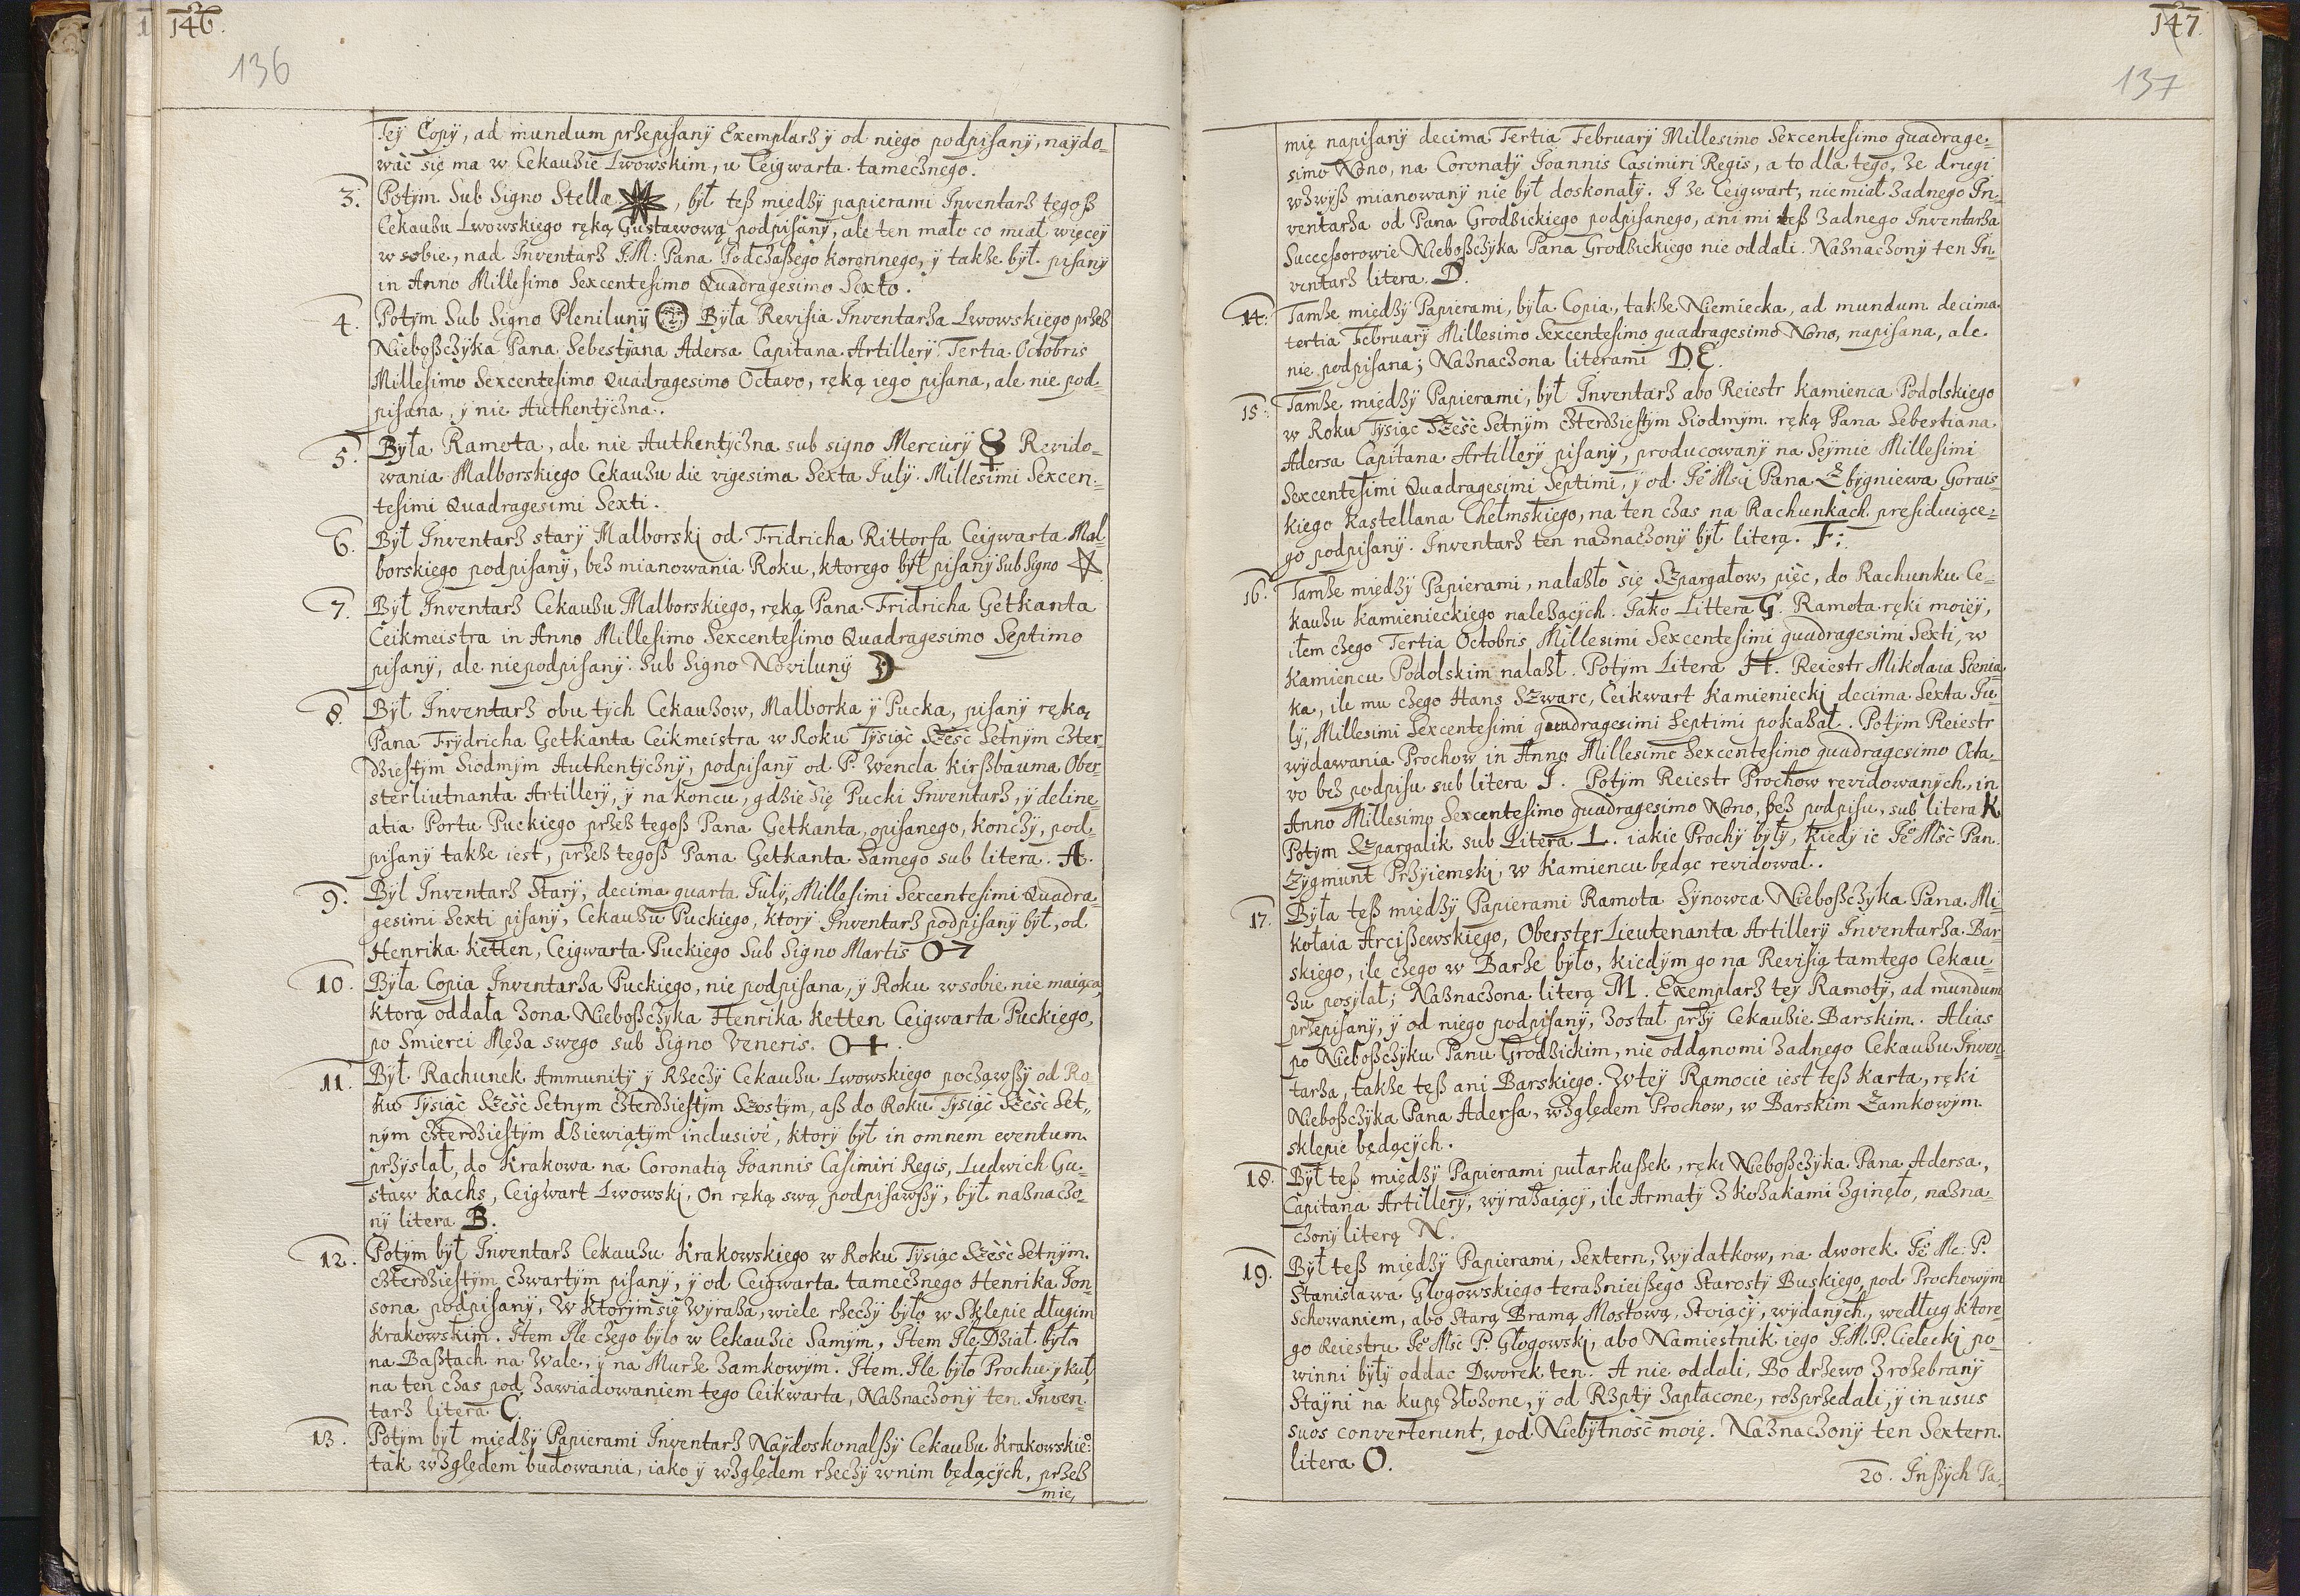 146.
136
Tey Copÿ, ad mundum przepisanÿ Exemplarz ÿ od niego podpisanÿ, naÿdo-
wać się ma w Cekauzie Lwowskim, u Ceigwarta tamecznego.
3. Potÿm Sub Signo Stellæ , był teß międzÿ papierami Inventarz tegoß
Cekauzu Lwowskiego ręką Gustawową podpisanÿ, ale ten mało co miał więceÿ
w sobie, nad Inventarz J.M: Pana Podczaßego koronnego, ÿ takze bÿł pisanÿ
in Anno Millesimo Sexcentesimo Quadragesimo Sexto.
4. Potÿm Sub Signo Plenilunÿ Bÿła Revisia Inventarza Lwowskiego przez
Nieboßczÿka Pana Sebestÿana Adersa Capitana Artillerÿ Tertia Octobris
Millesimo Sexcentesimo Quadragesimo Octavo, ręką iego pisana, ale nie pod-
pisana, ÿ nie Authentÿczna.
5. Bÿła Ramota, ale nie Authentÿczna sub signo Mercurÿ ☿ Revido-
wania Malborskiego Cekauzu die vigesima Sexta Julÿ Millesimi Sexcen-
tesimi Quadragesimi Sexti.
6. Bÿł Inventarz starÿ Malborskj od Fridricha Rittorfa Ceigwarta Mal
borskiego podpisanÿ, bez mianowania Roku, ktorego bÿł pisanÿ Sub Signo ⛤
7. Bÿł Inventarz Cekauzu Malborskiego, ręką Pana Fridricha Getkanta
Ceikmeistra in Anno Millesimo Sexcentesimo Quadragesimo Septimo
pisanÿ, ale niepodpisanÿ. Sub Signo Novilunÿ ☽
8. Bÿł Inventarz obu tÿch Cekauzow, Malborka ÿ Pucka, pisanÿ ręką
Pana Frÿdricha Getkanta Ceikmeistra w Roku Tÿsiąc Szesc Setnÿm czter-
dziestÿm Siodmÿm Authentÿcznÿ, podpisanÿ od P. Wencla Kirßbauma Ober-
sterliutnanta Artillerÿ, ÿ na koncu, gdzie się Pucki Inventarz, ÿ deline-
atia Portu Puckiego przez tegoß Pana Getkanta, opisanego, konczÿ, pod-
pisanÿ takze iest, przez tegoß Pana Getkanta Samego sub litera. A.
9. Bÿl Inventarz Starÿ, decima quarta Julÿ, Millesimi Sexcentesimi Quadra-
gesimi Sexti pisanÿ, Cekauzu Puckiego, ktorÿ Inventarz podpisanÿ bÿł, od
Henrika Ketten, Ceigwarta Puckiego Sub Signo Martis ♂
10. Bÿła Copia Inventarza Puckiego, nie podpisana, ÿ Roku w sobie nie maiąca,
ktorą oddała Zona Nieboßczÿka Henrika Ketten Ceigwarta Puckiego,
po Smierci Męża swego sub Signo Veneris. ♀.
11. Bÿł Rachunek Ammunitÿ ÿ Rzeczÿ Cekauzu Lwowskiego począwßÿ od Ro-
ku Tÿsiąc Szesc Setnym czterdziestÿm Szostÿm, aß do Roku Tÿsiąc Szesc Set-
nÿm czterdziestÿm dziewiątÿm inclusive, ktorÿ bÿł in omnem eventum
przÿslał, do Krakowa na Coronatią Joannis Casimiri Regis, Ludwich Gu-
staw Kachs, Ceigwart Lwowskj, On ręką swą podpisawßÿ, bÿł naznaczo-
nÿ litera B.
12. Potÿm bÿł Inventarz Cekauzu Krakowskiego w Roku Tÿsiąc Szesc Setnÿm
czterdziestÿm czwartÿm pisanÿ, ÿ od Ceigwarta tamecznego Henrika Jon-
sona podpisanÿ, W ktorÿm się wÿraza, wiele rzeczÿ bÿło w Sklepie długim
Krakowskim. Item Ile czego bÿło w Cekauzie Samÿm, Item Ile Dział bÿło
na Baßtach na Wale, ÿ na Murze Zamkowÿm. Item. Ile bÿło Prochu ÿ kul,
na ten czas pod zawiadowaniem tego Ceikwarta, Naznaczonÿ ten Inven-
tarz litera C.
13. Potÿm bÿł międzÿ Papierami Inventarz Naÿdoskonalßÿ Cekauzu Krakowskieº:
tak względem budowania, iako ÿ względem rzeczÿ w nim będącÿch, przez
mię,
147.
137
mię napisanÿ decima Tertia Februarÿ Millesimo Sexcentesimo quadrage-
simo Nono, na Coronatÿ Joannis Casimiri Regis, a to dla tego, ze drugi
wzwÿß mianowanÿ nie bÿł doskonałÿ. I ze Ceigwart, nie miał zadnego In-
ventarza od Pana Grodzickiego podpisanego, ani mi teß zadnego Inventarza
Successorowie Nieboßczÿka Pana Grodzickiego nie oddali. Naznaczonÿ ten In-
ventarz litera. D.
14. Tamze międzÿ Papierami, bÿła Copia, takze Niemiecka, ad mundum decima
tertia Februarÿ Millesimo Sexcentesimo quadragesimo Nono, napisana, ale
nie podpisana; Naznaczona literami D.E.
15. Tamze międzÿ Papierami, bÿł Inventarz abo Reiestr Kamienca Podolskiego
w Roku Tÿsiąc Szesc Setnÿm czterdziestÿm Siodmÿm ręką Pana Sebestiana
Adersa Capitana Artillerÿ pisanÿ, producowanÿ na Seÿmie Millesimi
Sexcentesimi Quadragesimi Septimi, ÿ od Jeº Msci Pana Zbÿgniewa Gorais-
kiego Kastellana Chełmskiego, na ten czas na Rachunkach presiduiące-
go podpisanÿ. Inventarz ten naznaczonÿ bÿł literą. F:
16. Tamze międzÿ Papierami, nalazło się Szpargałow, pięc, do Rachunku Ce-
kauzu Kamienieckiego nalezącÿch. Jako Littera G. Ramota ręki moieÿ,
iłem czego Tertia Octobris Millesimi Sexcentesimi quadragesimi Sexti, w
Kamiencu Podolskim nalazł. Potÿm Litera H. Reiestr Mikolaia Scenia-
ka, ile mu czego Hans Szwarc, Ceikwart Kamienieckj decima Sexta Ju-
lÿ, Millesimi Sexcentesimi quadragesimi Septimi pokazał. Potÿm Reiestr
wÿdawania Prochow in Anno Millesimo Sexcentesimo quadragesimo Octa-
vo bez podpisu sub litera I. Potÿm Reiestr Prochow revidowanÿch, in
Anno Millesimo Sexcentesimo quadragesimo Nono, bez podpisu, sub litera K
Potÿm Szpargalik sub Litera L. iakie Prochÿ bÿłÿ, kiedÿ ie Jeº Msc Pan
Zÿgmunt Przÿiemskj, w Kamiencu będąc revidował.
17. Bÿła teß międzÿ Papierami Ramota Sÿnowca Nieboßczÿka Pana Mi-
kołaia Arcißewskiego, Oberster Lieutenanta Artillerÿ Inventarza Bar-
skiego, ile czego w Barze bÿło, kiedÿm go na Revisią tamtego Cekau-
zu posÿlał; Naznaczona literą M. Exemplarz teÿ Ramotÿ, ad mundum
przepisanÿ, ÿ od niego podpisanÿ, został przÿ Cekauzie Barskim. Alias
po Nieboßczÿku Panu Grodzickim, nie oddano mi zadnego Cekauzu Inven-
tarza, takze teß ani Barskiego. W teÿ Ramocie iest teß karta, ręki
Nieboßczÿka Pana Adersa, względem Prochow, w Barskim Zamkowÿm
sklepie będącÿch.
18. Bÿł teß międzÿ Papierami pułarkußek, ręki Nieboßczÿka Pana Adersa,
Capitana Artillerÿ, wÿrazaiącÿ, ile Armatÿ z Kozakami zginęło, nazna-
czonÿ literą N.
19. Bÿł teß międzÿ Papierami, Sextern, Wÿdatkow, na dworek Jeº Mc: P.
Stanisława Głogowskiego teraznieißego Starostÿ Buskiego, pod Prochowÿm
Schowaniem, abo Starą Bramą Mostową, Stoiącÿ, wÿdanÿch, według ktore-
go Reiestru Jeº Msc P. Głogowskj, abo Namiestnik iego J.M.P. Cieleckj po-
winni bÿłÿ oddac Dworek ten. A nie oddali, Bo drzewo z rozebranÿ
Staÿni na kupę złozone, ÿ od Rzptÿ zapłacone, rozprzedali, ÿ in usus
suos converterunt, pod Niebÿtnosc moię. Naznaczonÿ ten Sextern.
litera O.
20. Inßÿch Pa-